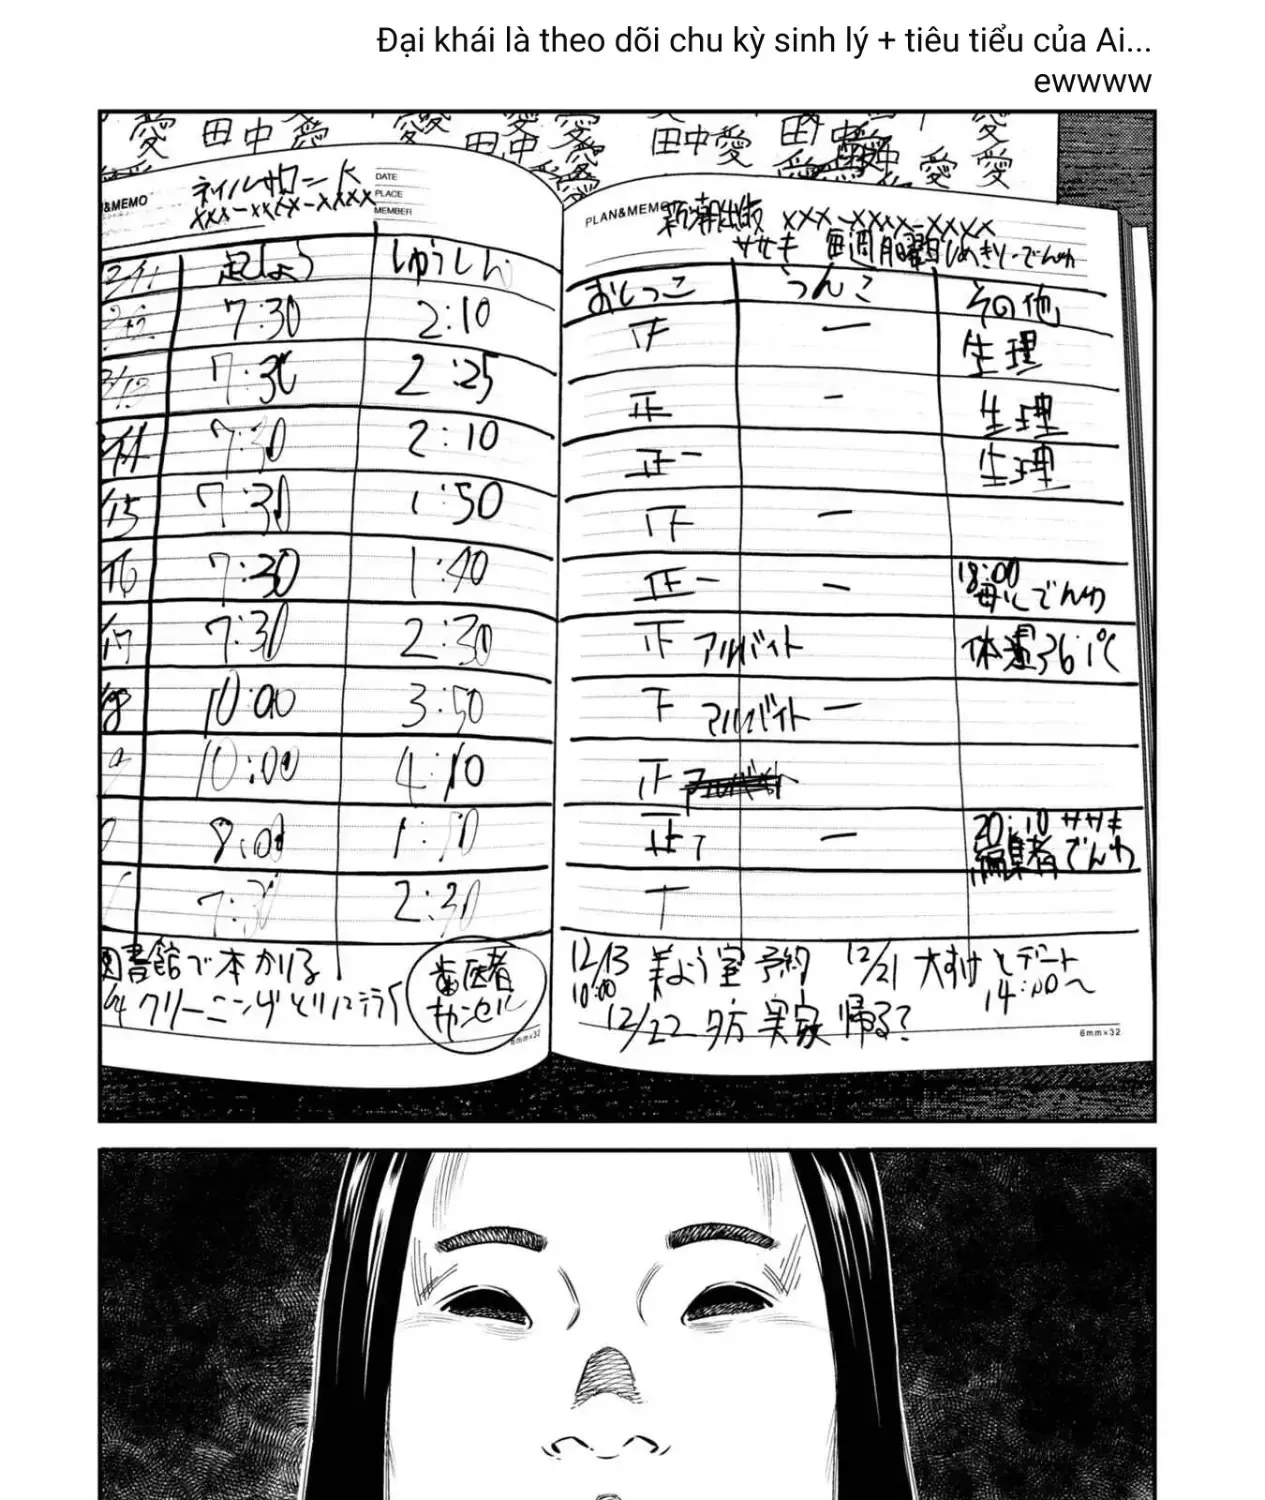 Đại khái là theo dõi chu kỳ sinh lý + tiêu tiểu của Ai...
ewwww
愛 田中愛 愛 田中愛 愛 田中愛 田中愛 愛 愛
&MEMO
ネイルサロン
xxx-xxxx-xxxx
DATE
PLACE
MEMBER
起しょう しゅうしん
7:30 2:10
7:30 2:25
7:30 2:10
15 7:30 1:50
16 7:30 1:40
17 7:30 2:30
18 10:00 3:50
10:00 4:10
8:00 1:50
7:30 2:30
図書館で本かりる
クリーニングとりに行く
歯医者
キャンセル
6mm×32
PLAN&MEMO
新潮出版 xxx-xxxx-xxxx
ササキ 毎週月曜日しめきり・でんわ
おしっこ うんこ その他
正 一 生理
正 一 生理
正一 生理
正 一
正一 一 18:00 母にでんわ
正 アルバイト 体温36.1℃
下 アルバイト 一
正
正 一 20:10 ササキ
編集者でんわ
丅
12/13 美よう室予約 12/21 大すけとデート
10:00 14:00~
12/22 夕方 実家帰る?
6mm×32